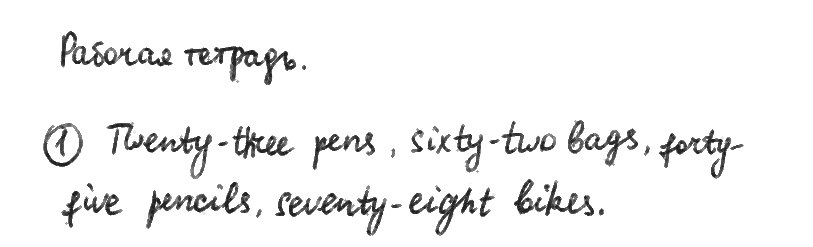 Рабочая тетрадь.
① Twenty-three pens, sixty-two bags, forty-
five pencils, seventy-eight bikes.